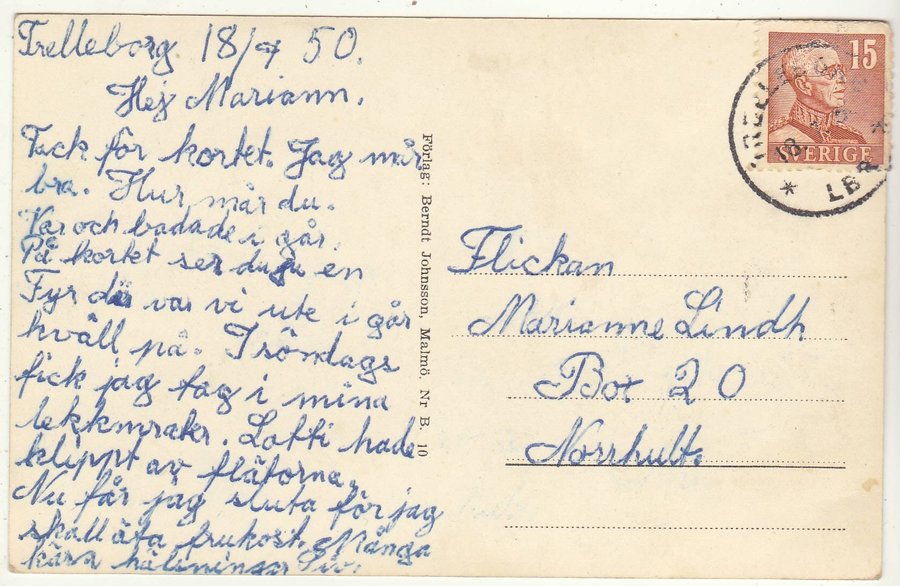 Trelleborg 18/7 50.
Hej Mariann.
Tack för kortet. Jag mår
bra. Hur mår du.
Var och badade i går.
På kortet ser du ju en
Fyr där var vi ute i går
kväll på. I söndags
fick jag tag i mina
lekkmrater. Lotti hade
klippt av flätorna.
Nu får jag sluta för jag
skall äta frukost. Många
kära hälsningar Siv.
Förlag: Berndt Johnsson, Malmö. Nr B. 10
15
SVERIGE
18
LBR
Flickan
Marianne Lindh
Box 20
Norrhult.